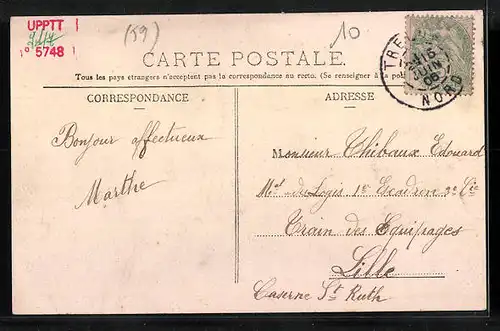 UPPTT
5748
(59)
10
CARTE POSTALE.
Tous les pays étrangers n'acceptent pas la correspondance au recto. (Se renseigner à la po
CORRESPONDANCE
ADRESSE
TRE
15
JUIN
06
NORD
Bonjour affectueux
Marthe
Monsieur Thibaux Edouard
Mal-des Logis 1er Escadron 2e Cie
Train des Equipages
Lille
Caserne St Ruth